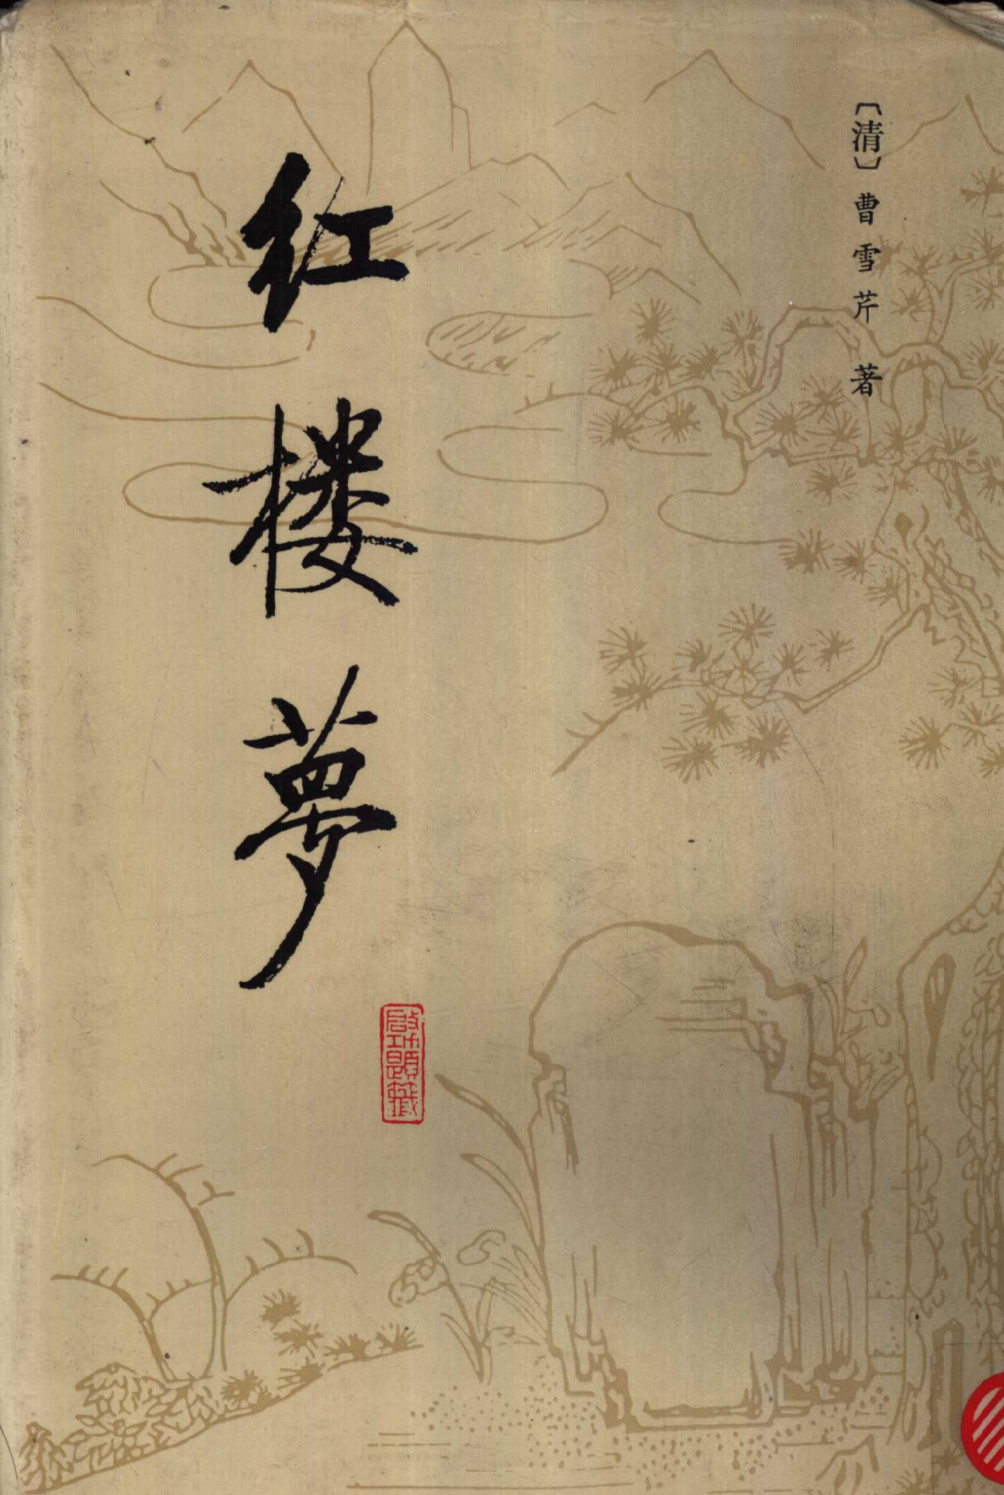 〔清〕曹雪芹 著
红楼梦
啟功題籤